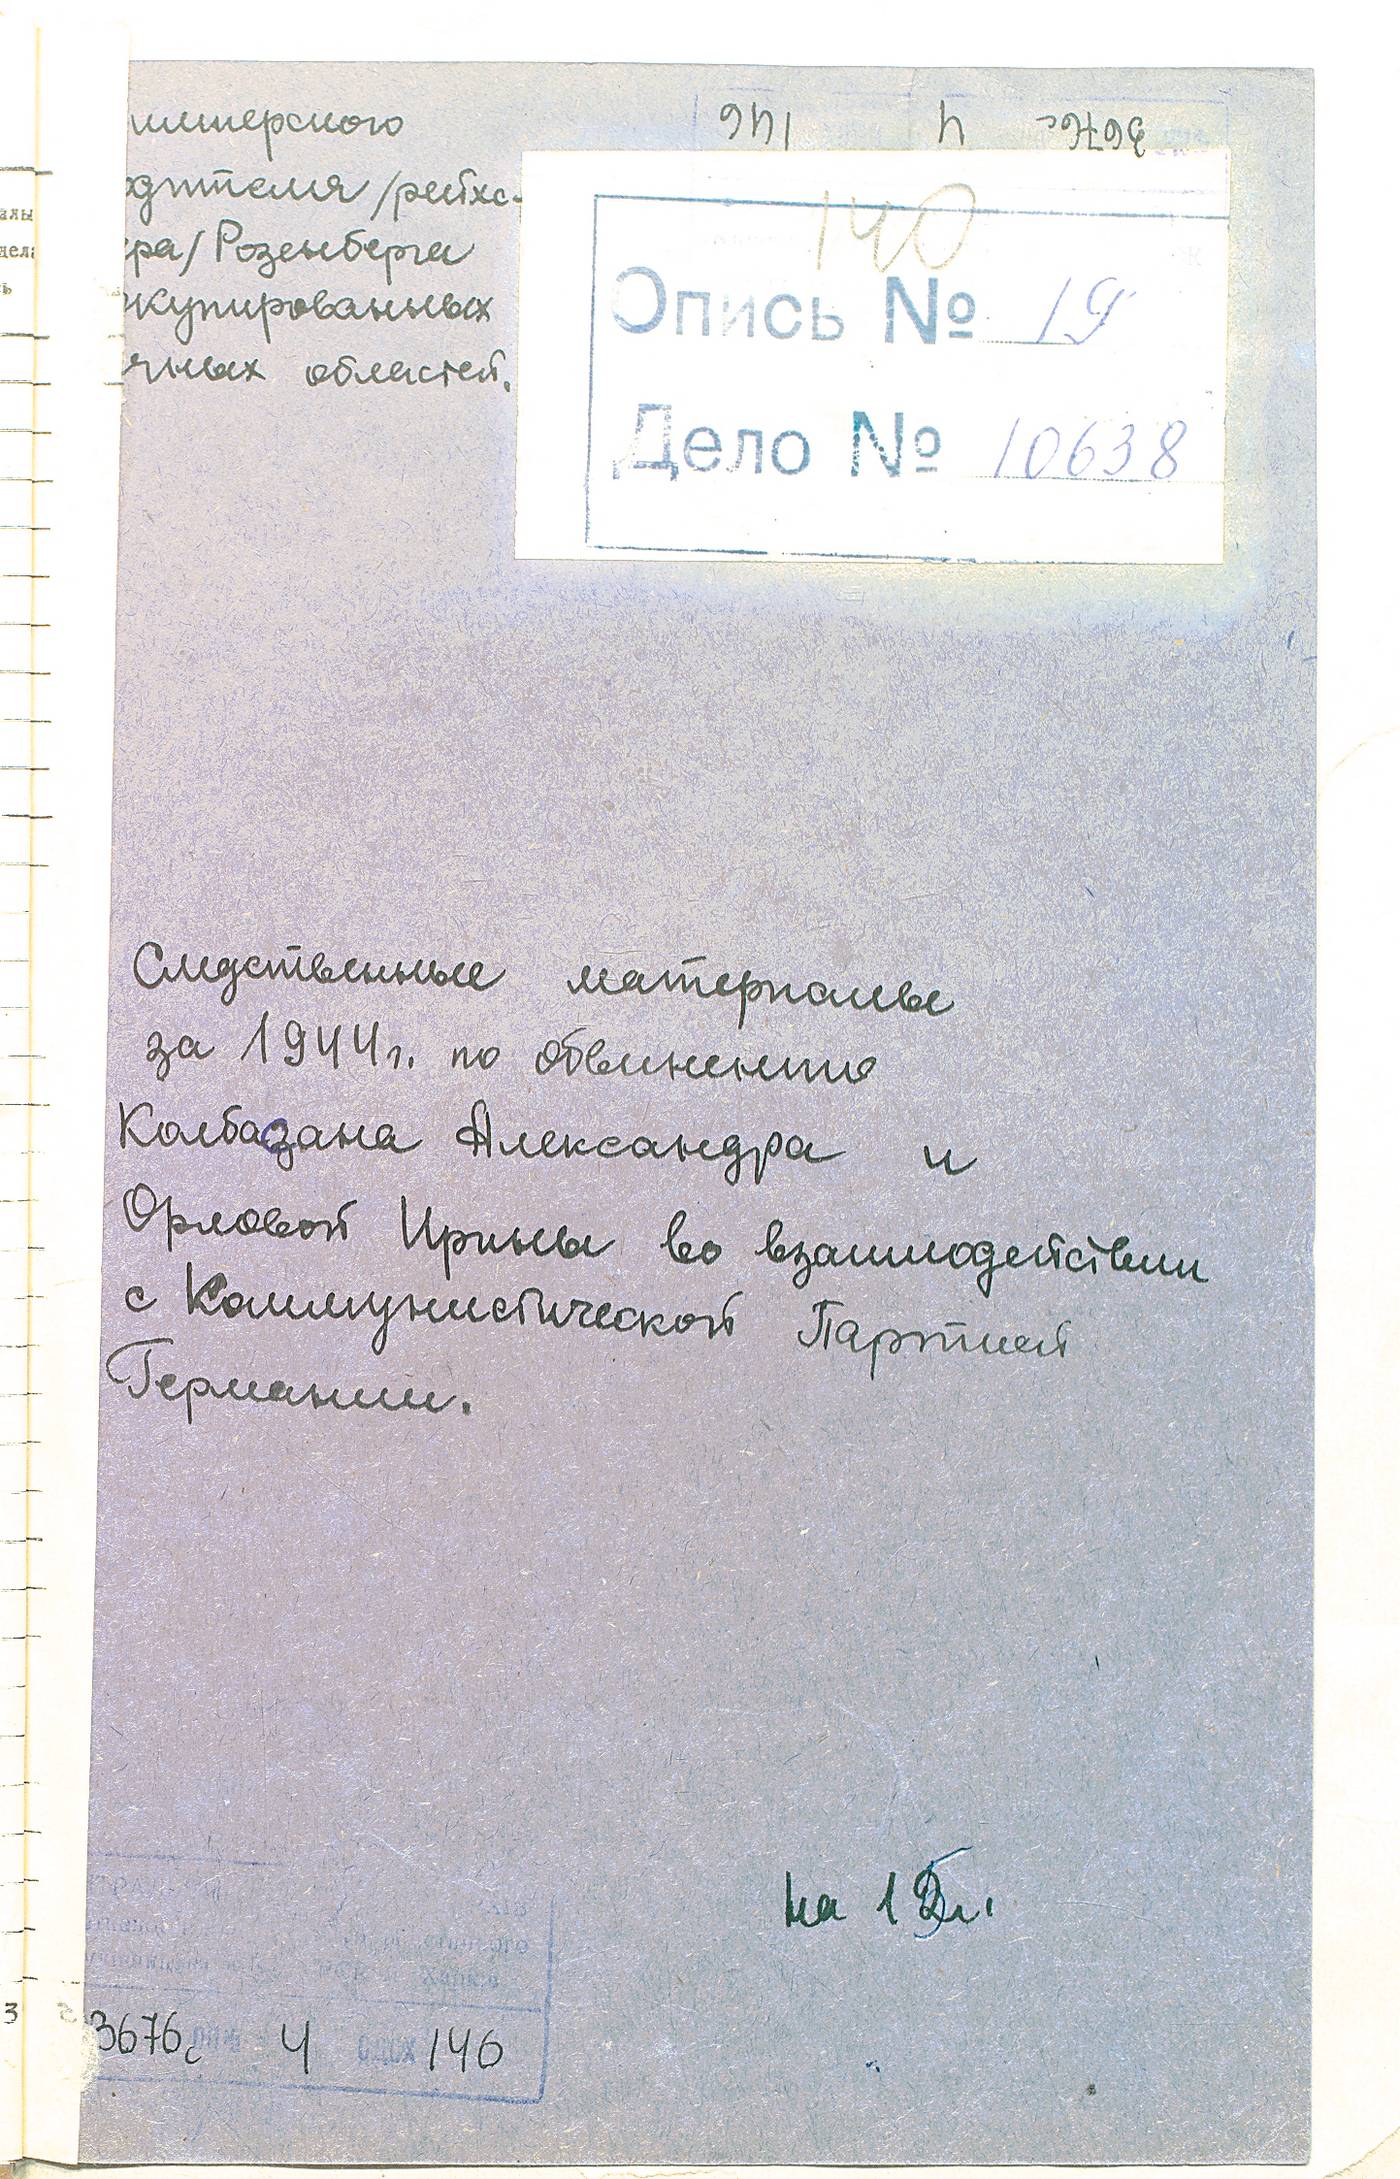 имперского
одителя /рейхс-
ера/ Розенберга
оккупированных
чных областей.
3676с 4 146
140
Опись № 19
Дело № 10638
Следственные материалы
за 1944г. по обвинению
Колбазана Александра и
Орловой Ирины во взаимодействии
с Коммунистической Партией
Германии.
на 15л.
3676с 4 146
3